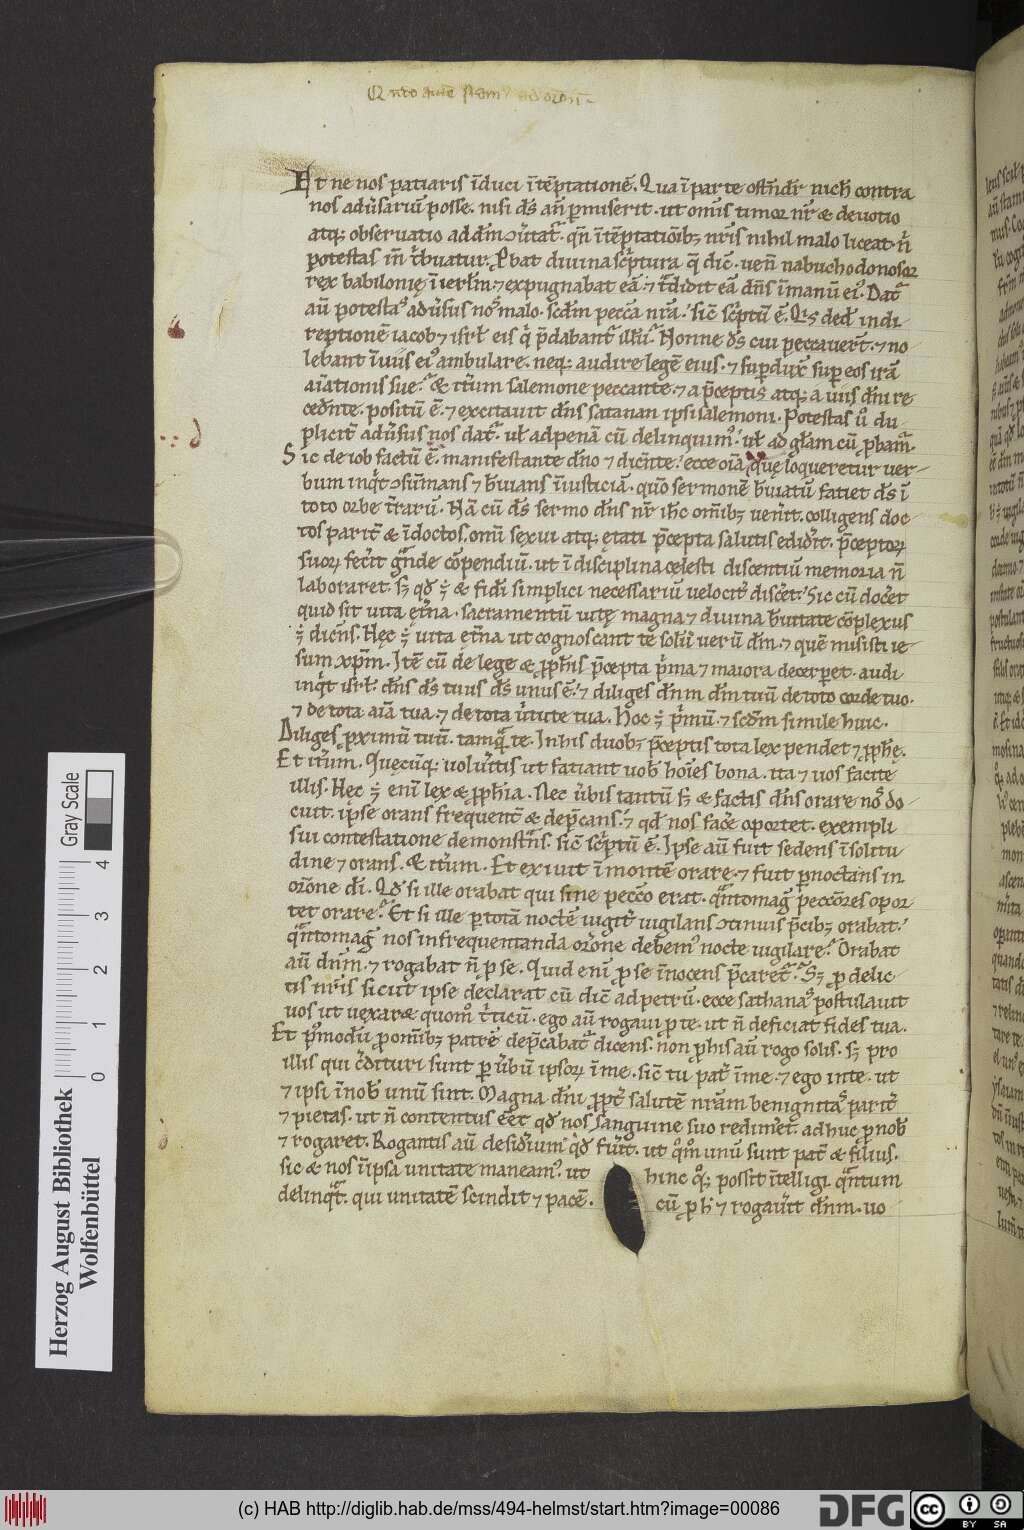 Et ne nos patiaris īduci ītēptationē. Qua ī parte ostēdit᷑ nich̄ contra
nos adūsariū posse. nisi ds̄ an̄ ꝑmiserit. ut om̄is timor nr̄ & deuotio
atq; obseruatio ad dn̄m ꝯūtat᷑. qn̄ ītēptatiōib; nr̄is nihil malo liceat. n̄
potestas in̄ t̄buatur. Ꝓbat diuina scptura q̄ dic̄. uen̄ nabuchodonosor
rex babilonię ī ierl̄m. ⁊ expugnabat eā. ⁊ t̄didit eā dn̄s ī manū ei᷒. Dat᷑
aū potestas adūsus nos malo. scd̄m pecca nr̄a. sic̄ scptū ē. Qis ded̄ indi
reptionē iacob ⁊ isrl̄ eis q̇ p̄dabant᷑ illū. Nonne ds̄ cui peccauer̄t. ⁊ no
lebant ī uiis ei᷒ ambulare. neq; audire legē eius. ⁊ suꝑdux̄ suꝑ eos irā
aīationis sue. & itū̄m salemone peccante. ⁊ a p̄ceptis atq; a uiis dn̄i re
cedn̄te. positū ē. ⁊ excitauit dn̄s satanan ipsi salemoni. Potestas ū̊ du
plicit̄ adūsus nos dat᷑. ul̄ ad penā cū delinquim᷒. ul̄ ad gl̄am cū ꝓbam᷑.
Sic de iob factū ē. manifestante dn̄o ⁊ dicn̄te. ecce oīa quę loqueretur uer
bum inqt ꝯsūmans ⁊ b̄uians ī iusticiā. quō sermonē b̄uiatū fatiet ds̄ ī
toto orbe t̄rarū. Nā cū ds̄ sermo dn̄s nr̄ ih̄c om̄ib; uen̄it. colligens doc
tos parit̄ & īdoctos. om̄i sexui atq; ętati p̄cepta salutis edidit. p̄ceptoꝝ
suoꝝ fecit gnde cōpendiū. ut ī disciplina celesti discentiū memoria n̄
laboraret. sꝫ qd̄ ÷ & fidi simplici necessariū uelocit̄ discet. Sic cū docet
quid sit uita ęt̄na. sacramentū uitę magna ⁊ diuina b̄uitate cōplexus
÷ dicn̄s. Hęc ÷ uita ęt̄na ut cognoscant te solū uerū dm̄. ⁊ quē misisti ie
sum xpm̄. Itē cū de lege & ꝓph̄is p̄cepta p̄ma ⁊ maiora decerꝑet. audi
inqt isrl̄. dn̄s ds̄ tuus ds̄ unus ē. ⁊ diliges dn̄m dm̄ tuū de toto corde tuo.
⁊ de tota aīa tua. ⁊ de tota ūtute tua. Hoc ÷ p̄mū. ⁊ scd̄m simile huic.
Diliges ꝓximū tuū. tamq te. In his duob; p̄ceptis tota lex pendet ⁊ ꝓph̄ę.
Et itū̄m. Quęcūq; uolūitis ut fatiant uob̄ hoīes bona. ita ⁊ uos facite
illis. Hęc ÷ enī lex & ꝓph̄ia. Nec ūbis tantū sꝫ & factis dn̄s orare nos do
cuit. ipse orans frequent̄ & dep̄cans. ⁊ qd̄ nos face oportet. exempli
sui contestatione demonstns. sic̄ scptū ē. Ipse aū fuit sedens ī solitu
dine ⁊ orans. & itū̄m. Et exiuit ī montē orare. ⁊ fuit ꝑnoctans in
orōne di̅. Qd̄ si ille orabat qui sine pecc̄o erat. qntomag peccōres opor
tet orare. Et si ille ꝑ totā noctē iugit̄ uigilans ꝯtinuis p̄cib; orabat.
qntomag nos infrequentanda orōne debem᷒ nocte uigilare. Orabat
aū dn̄m. ⁊ rogabat n̄ ꝓ se. Quid enī ꝓ se īnocens p̄caret᷑. Sꝫ ꝓ delic
tis nr̄is sicut ipse declarat cū dic̄ ad petrū. ecce sathanas postulauit
uos ut uexaræ quom̊ t̄ticū. ego aū rogaui ꝓ te. ut n̄ deficiat fides tua.
Et p̊modū ꝓ om̄ib; patrē dep̄cabat᷑ dicens. non ꝓ his aū rogo solis. sꝫ pro
illis qui c̄dituri sunt ꝑ ūbū ipsoꝝ ī me. sic̄ tu pat̄ ī me. ⁊ ego in te. ut
⁊ ipsi ī nob̄ unū sint. Magna dn̄i ꝓpt̄ salutē nr̄am benignitas parit̄
⁊ pietas. ut n̄ contentus eēt qd̄ nos sanguine suo redimet. adhuc ꝓ nob̄
⁊ rogaret. Rogantis aū desidium qd̄ fuit. ut qm̊ unū sunt pat̄ & filius.
sic & nos ī ipsa unitate maneam᷒. ut hinc qꝫ possit ītelligi qntum
delinqt. qui unitatē scindit ⁊ pacē. cū ꝓ h̄ ⁊ rogauit dn̄m. uo
Herzog August Bibliothek
Wolfenbüttel
0 1 2 3 4
Gray Scale
(c) HAB http://diglib.hab.de/mss/494-helmst/start.htm?image=00086
DFG
cc BY SA